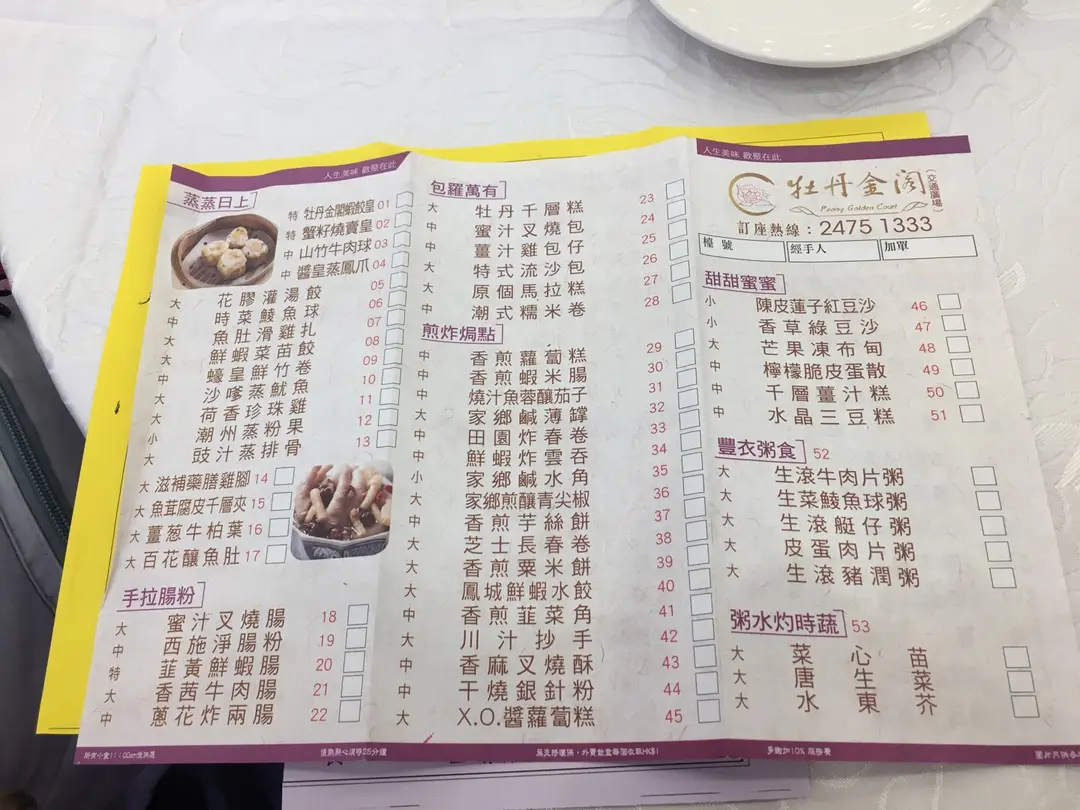 人生美味 歡聚在此
蒸蒸日上
特 牡丹金閣蝦餃皇 01
特 蟹籽燒賣皇 02
中 山竹牛肉球 03
中 醬皇蒸鳳爪 04
大 花膠灌湯餃 05
中 時菜鯪魚球 06
大 魚肚滑雞扎 07
大 鮮蝦菜苗餃 08
大 蠔皇鮮竹卷 09
中 沙嗲蒸魷魚 10
大 荷香珍珠雞 11
小 潮州蒸粉果 12
大 豉汁蒸排骨 13
大 滋補藥膳雞腳 14
大 魚茸腐皮千層夾 15
大 薑葱牛柏葉 16
大 百花釀魚肚 17
手拉腸粉
大 蜜汁叉燒腸 18
中 西施淨腸粉 19
特 韮黃鮮蝦腸 20
大 香茜牛肉腸 21
中 蔥花炸兩腸 22
包羅萬有
大 牡丹千層糕 23
中 蜜汁叉燒包 24
中 薑汁雞包仔 25
大 特式流沙包 26
大 原個馬拉糕 27
中 潮式糯米卷 28
煎炸焗點
中 香煎蘿蔔糕 29
中 香煎蝦米腸 30
大 燒汁魚蓉釀茄子 31
中 家鄉鹹薄罉 32
中 田園炸春卷 33
中 鮮蝦炸雲吞 34
小 家鄉鹹水角 35
中 家鄉煎釀青尖椒 36
中 香煎芋絲餅 37
大 芝士長春卷 38
中 香煎粟米餅 39
大 鳳城鮮蝦水餃 40
中 香煎韮菜角 41
大 川汁抄手 42
中 香麻叉燒酥 43
中 干燒銀針粉 44
大 X.O.醬蘿蔔糕 45
人生美味 歡聚在此
牡丹金閣 (交通廣場)
Peony Golden Court
訂座熱線：2475 1333
檯號 經手人 加單
甜甜蜜蜜
小 陳皮蓮子紅豆沙 46
小 香草綠豆沙 47
大 芒果凍布甸 48
大 檸檬脆皮蛋散 49
中 千層薑汁糕 50
中 水晶三豆糕 51
豐衣粥食 52
大 生滾牛肉片粥
大 生菜鯪魚球粥
大 生滾艇仔粥
大 皮蛋肉片粥
大 生滾豬潤粥
粥水灼時蔬 53
大 菜心苗
大 唐生菜
大 水東芥
多謝加10% 服務費